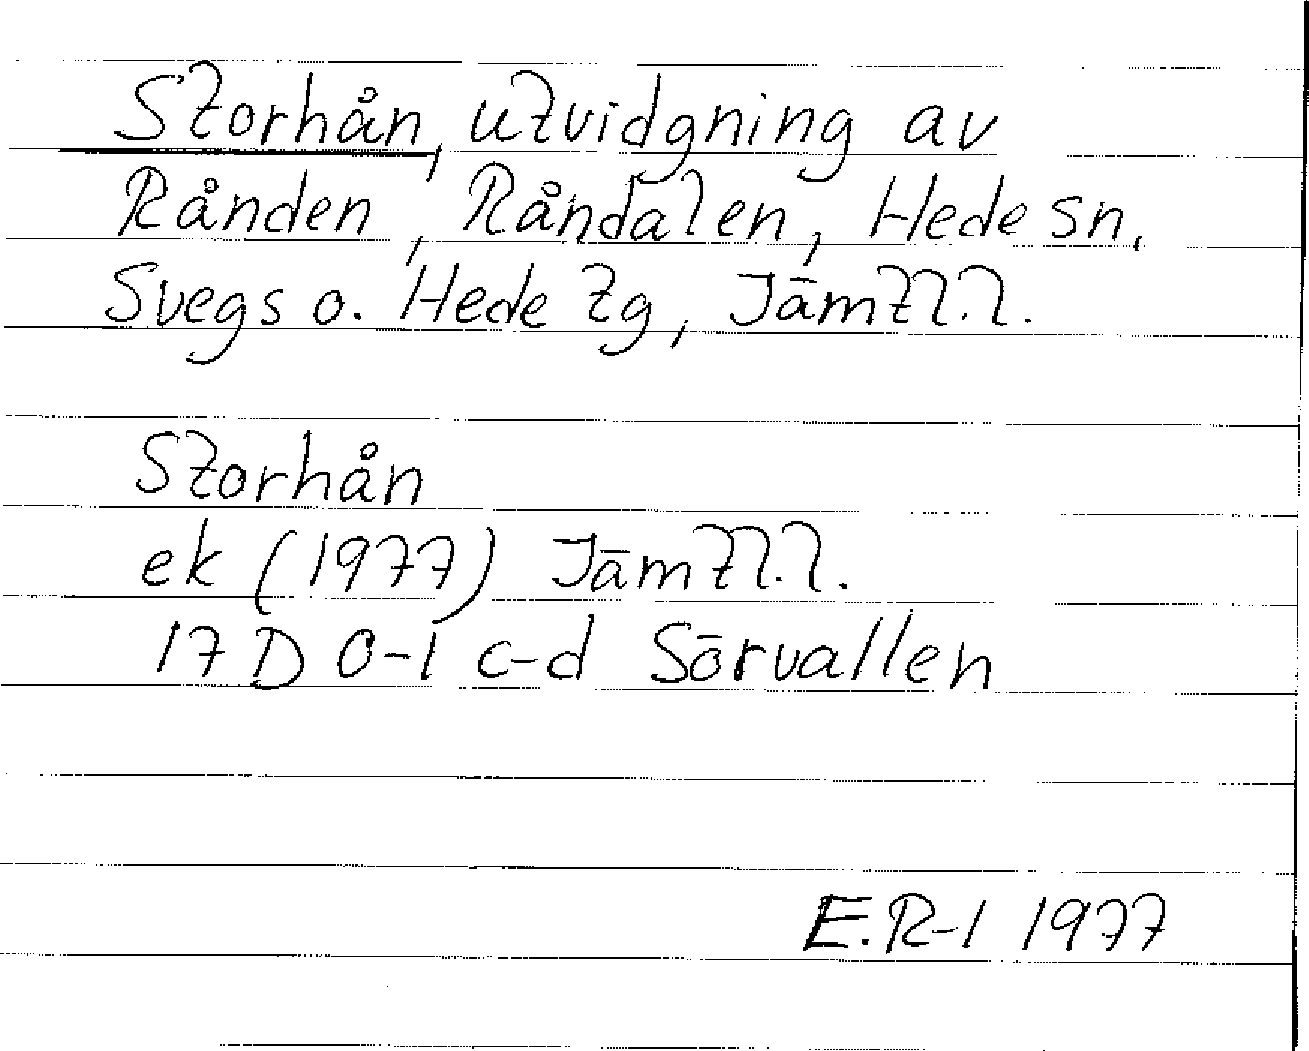 Storhån, utvidgning av
Rånden, Råndalen, Hede sn,
Svegs o. Hede tg, Jämtl.l.
Storhån
ek (1977) Jämtl.l.
17 D 0-1 c-d Sörvallen
E.R-l 1977